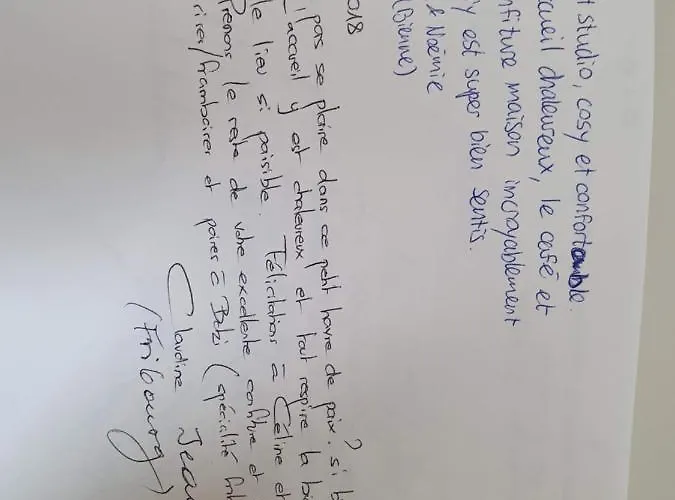 t studio, cosy et confortable.
cueil chaleureux, le café et
nfiture maison incroyablement
y est super bien sentis.
& Noémie
(Bienne)
018
pas se plaire dans ce petit havre de paix? si b
l'accueil y est chaleureux et tout respire la bi
le lieu si paisible. Félicitations à Céline et
Prenons le reste de votre excellente confiture et
rises/framboises et poires à Botzi (spécialité frib
Claudine Jea
(Fribourg)